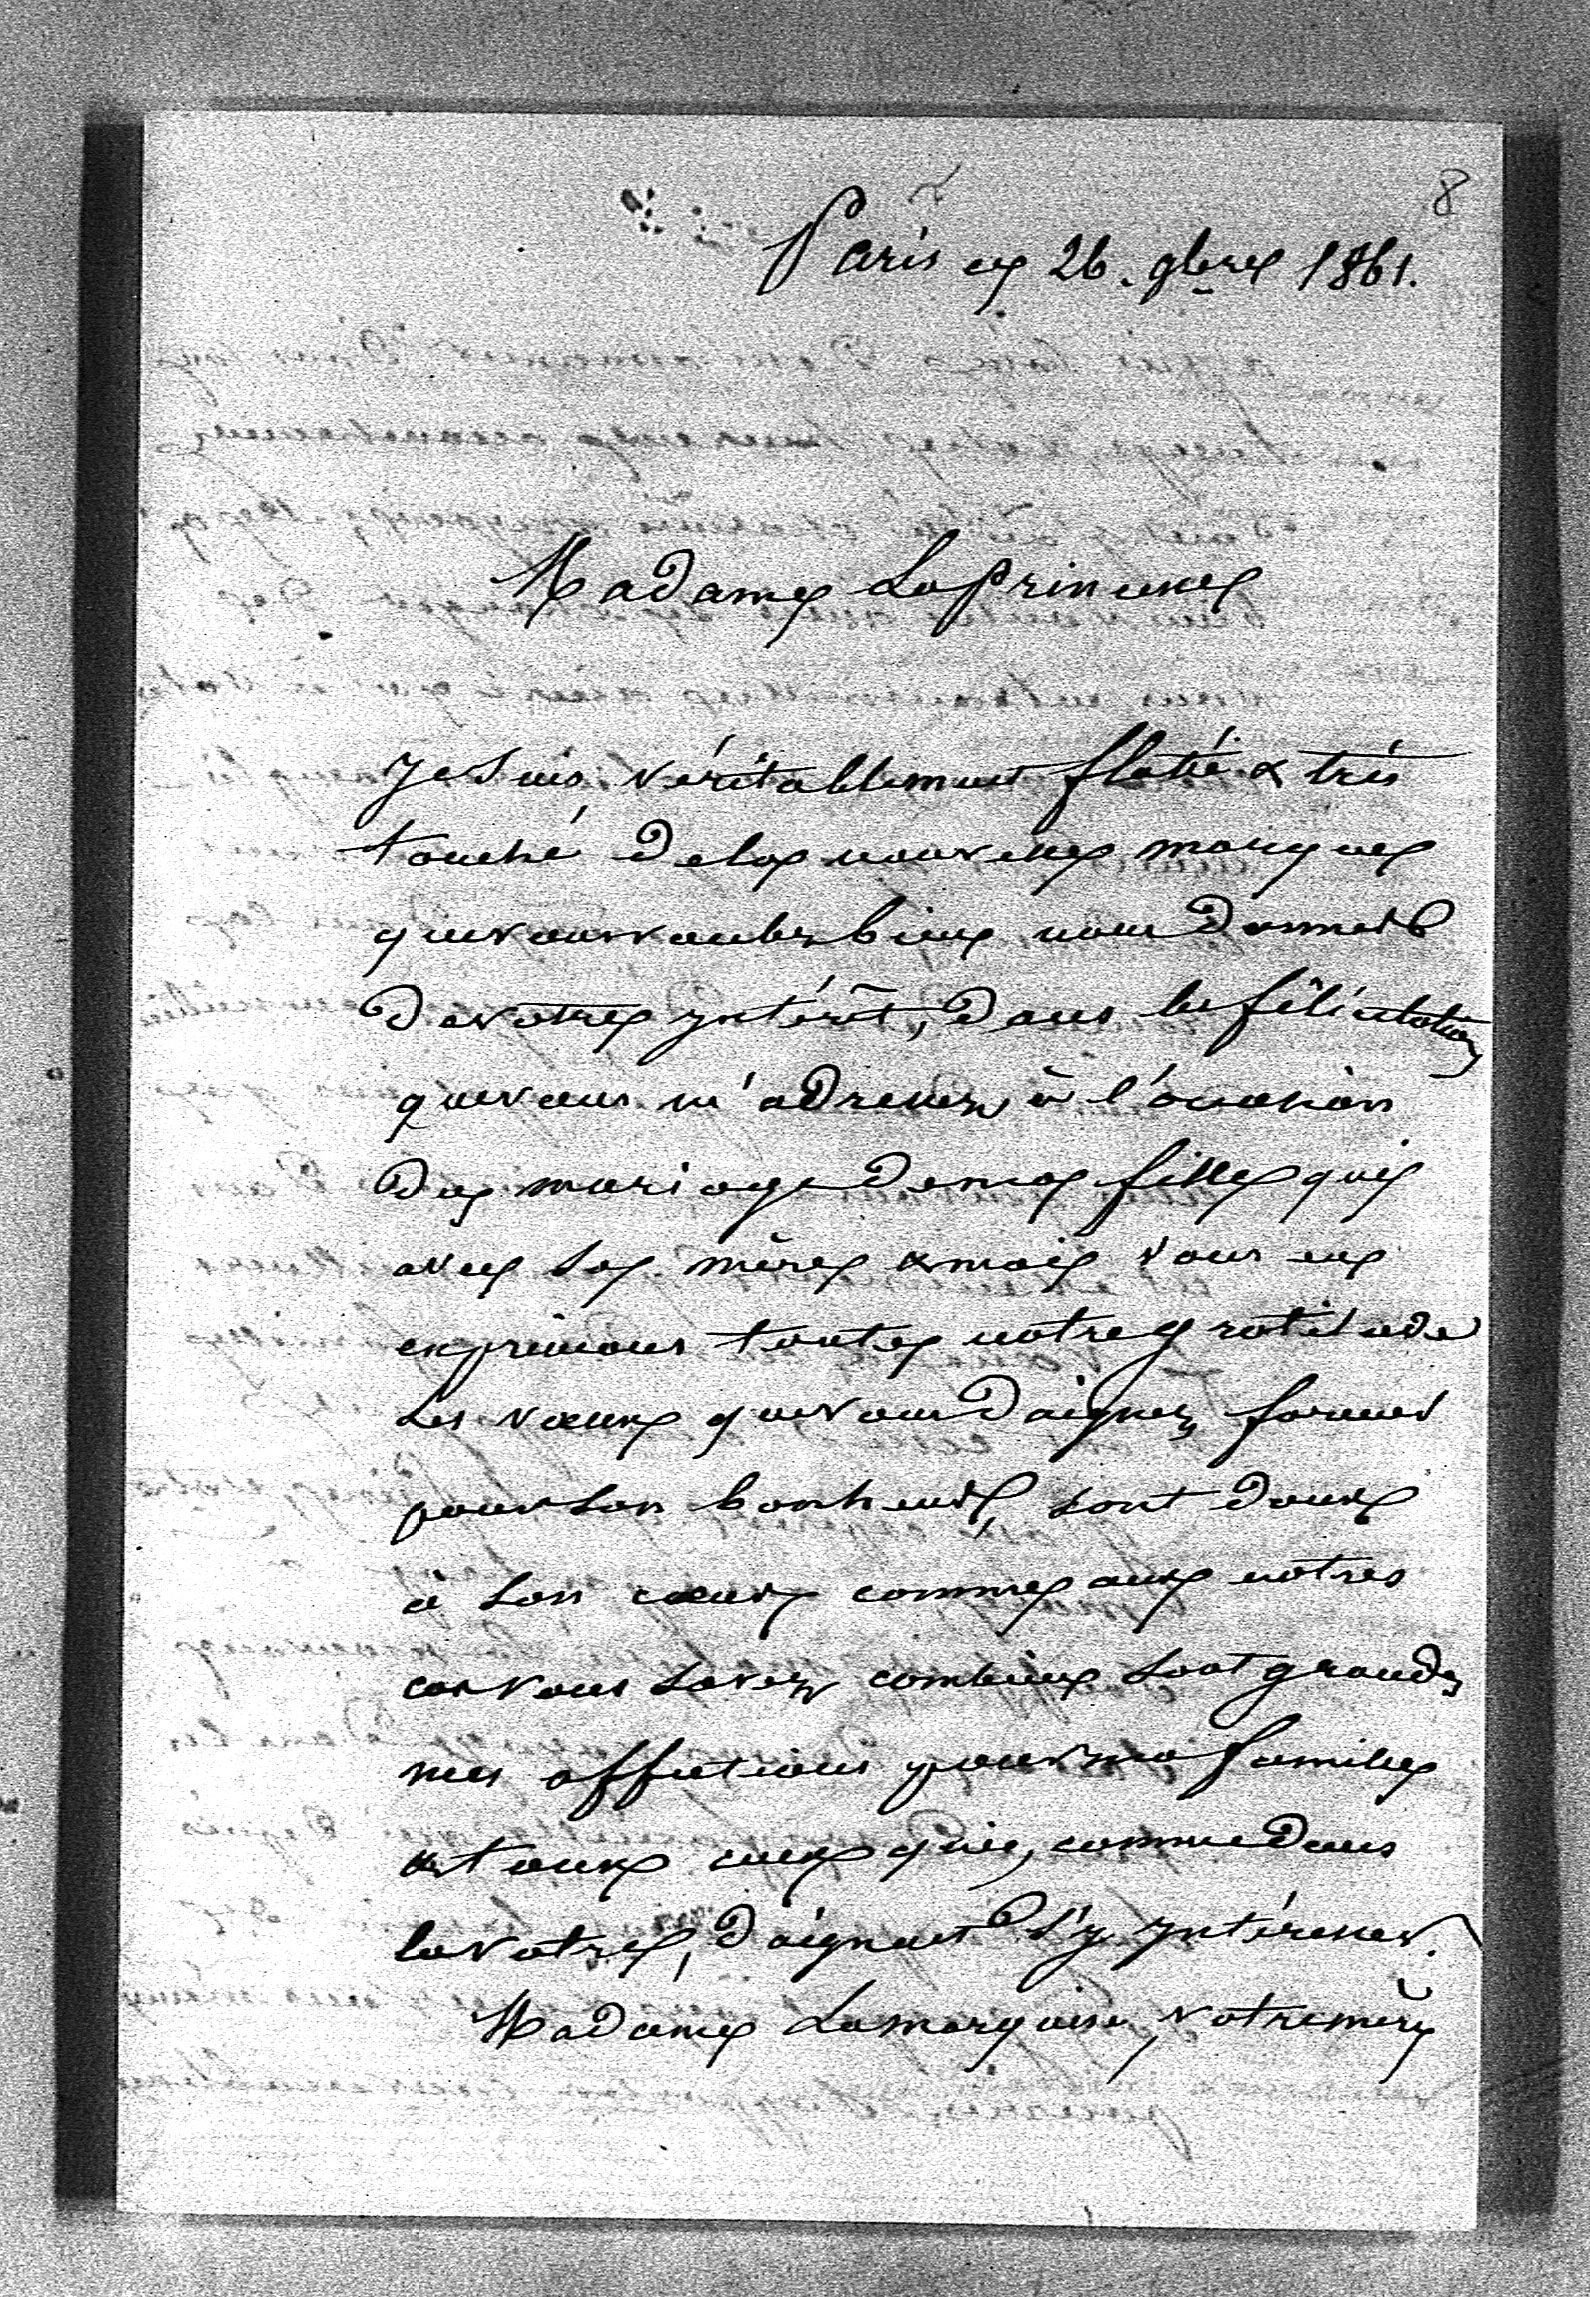 8
Paris ce 26. 9bre 1861.
Madame La Princesse
Je suis véritablement flatté & très
touché de la nouvelle marque
que vous voulez bien nous donner
de votre intérêt, dans les félicitations
que vous m'adressez à l'occasion
du mariage de ma fille qui
avec sa mère & moi vous en
exprimons toute notre gratitude
Les vœux que vous daignez former
pour son bonheur, sont doux
à son cœur comme aux notres
car vous savez combien sont grandes
mes affections pour ma famille
& tous ceux qui, comme dans
la votre, daignent s'y intéresser.
Madame La marquise, votre mère